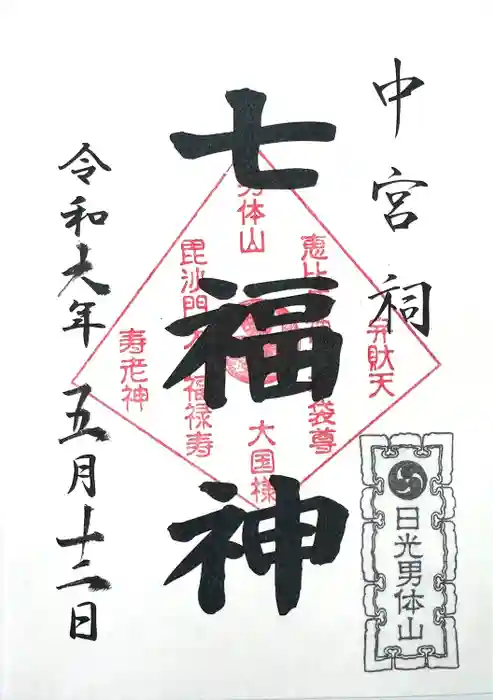 中宮祠
七福神
令和六年 五月十二日
男体山
恵比
弁財天
袋尊
毘沙門
福禄寿
寿老神
大国様
日光男体山